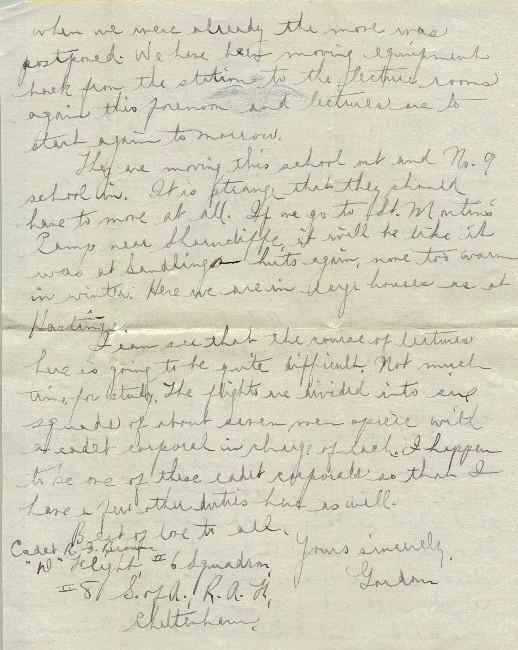 when we were already the move was
postponed. We have been moving equipment
back from the station to the lecture rooms
again this forenoon and lectures are to
start again tomorrow.
They are moving this school out and No. 9
school in. It is strange that they should
have to move at all. If we go to St. Martin's
Camp near Shorncliffe, it will be like it
was at Sandling - huts again, none too warm
in winter. Here we are in large houses as at
Hastings.
I can see that the course of lectures
here is going to be quite difficult. Not much
time for study. The flights are divided into six
squads of about seven men apiece with
a cadet corporal in charge of each. I happen
to be one of these cadet corporals so that I
have a few other duties here as well.
Best of love to all.
Yours sincerely,
Gordon
Cadet R. G. Brown
"D" Flight, # 6 Squadron,
# 8 S. of A., R. A. F.,
Cheltenham.